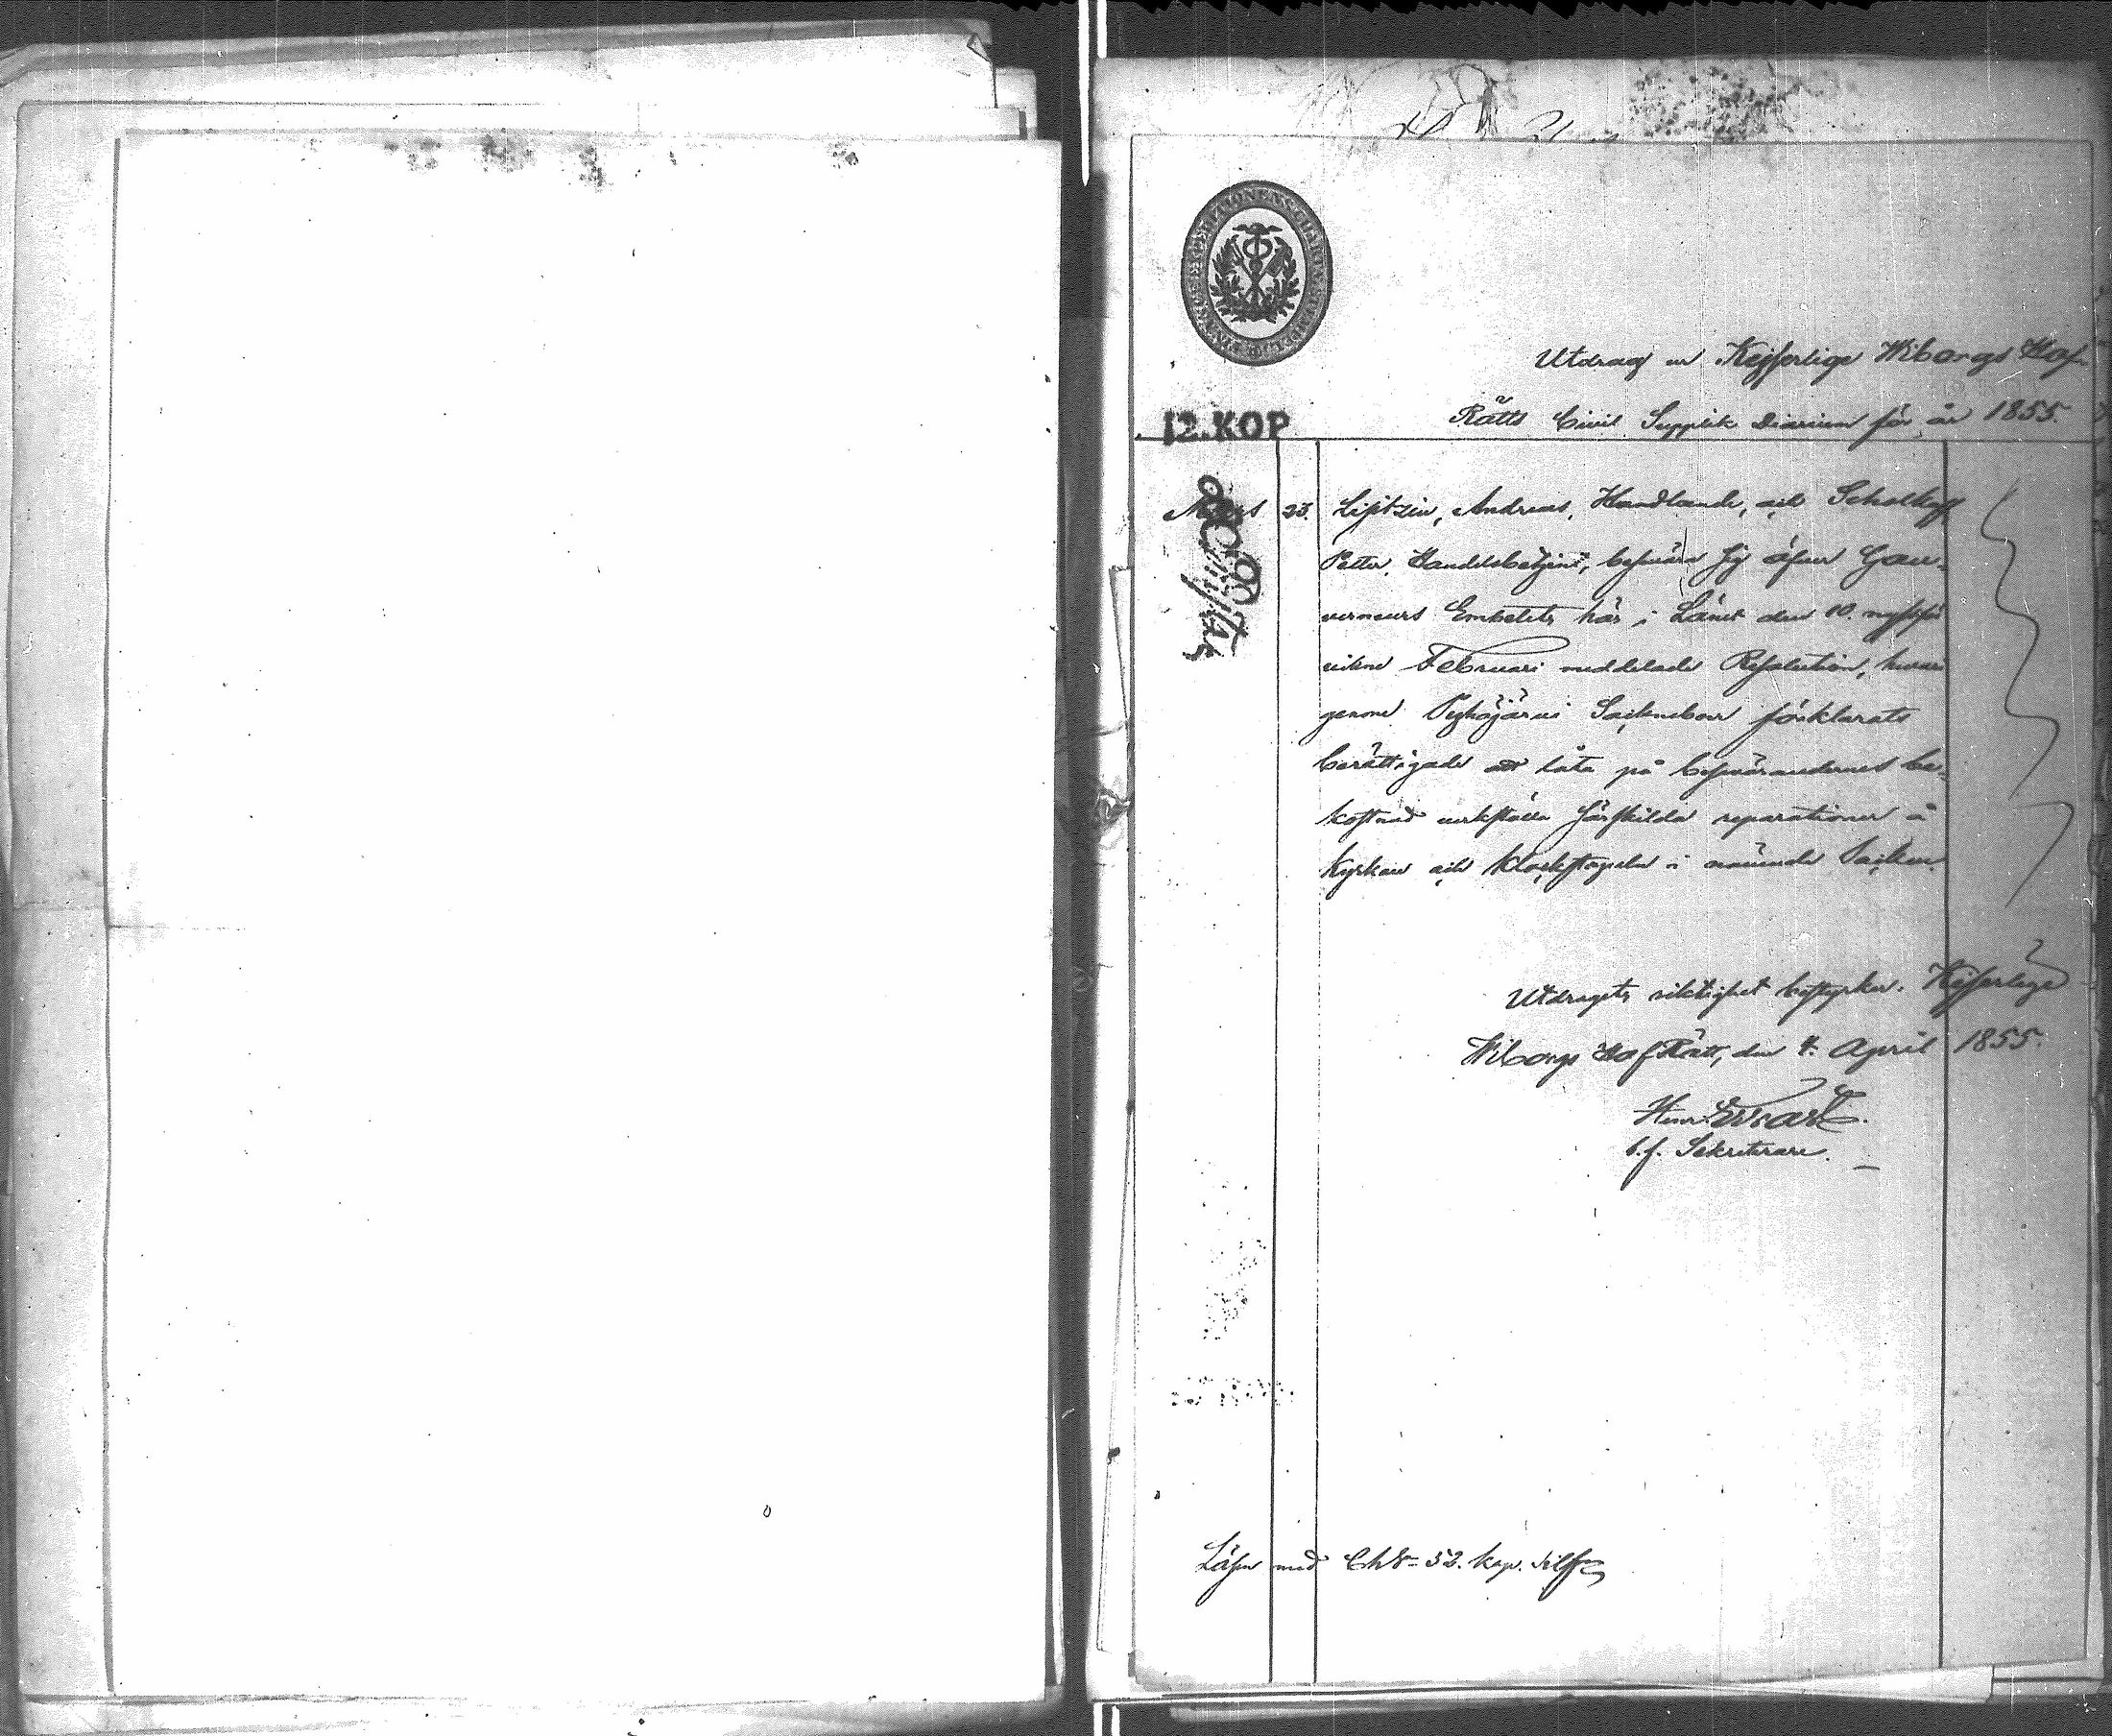 Utdrag ur Kejserlige Wiborgs Hof
Rätts Civil Supplik Diarium för år 1855.
12. KOP
Mars 23. Liptzin, Andreas, Handlande, och
Petter, Handelsbetjent, besvära sig öfver Gou-
verneurs Embetets här i Länet den 10. nystför
vikne Februari meddelade Resolution, hvari
genom Pyhäjärvi Socknebor förklarats
berättigade att låta på besvärandernes be-
kostnad verkställa särskilda reparationer å
Kyrkan och Klockstapeln i nämnde Socken.
Utdragets riktighet bestyrker. Kejserlige
Wiborgs Hof Rätt, den 4. April 1855.
t.f. Sekreterare.
Lösen med 52. kop. Silfver